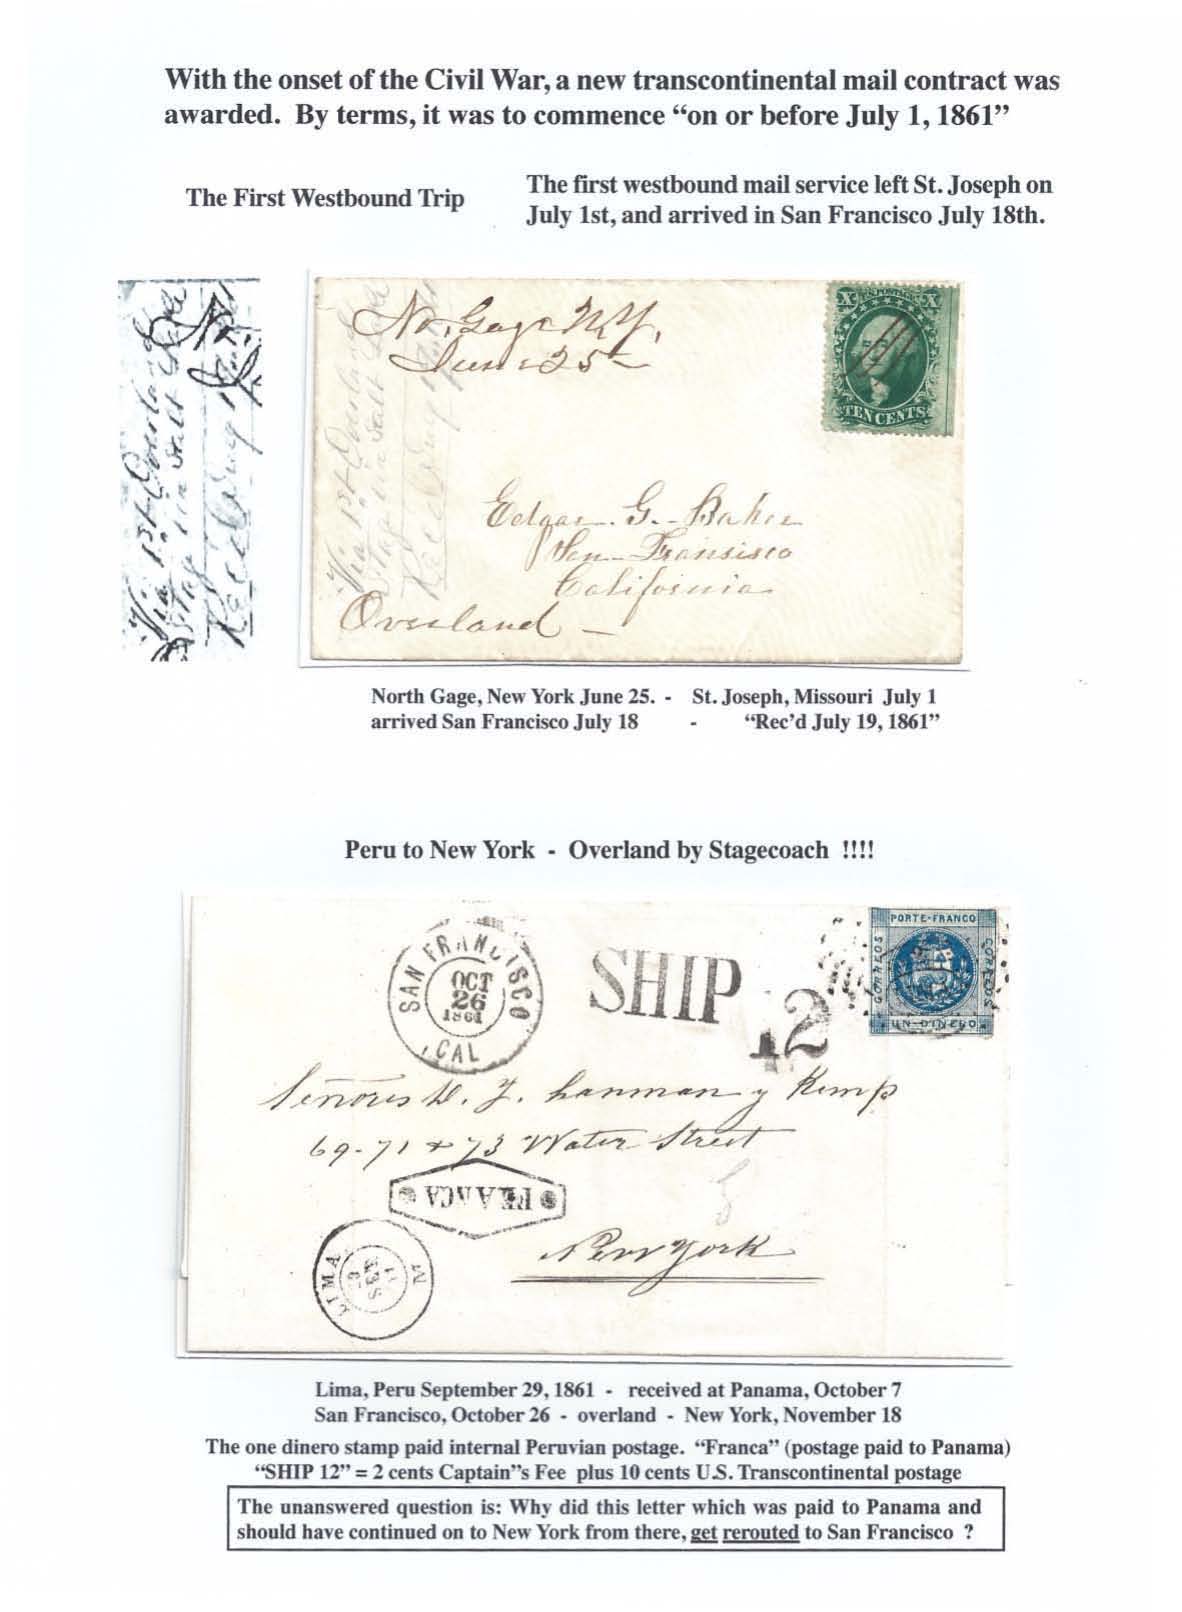 With the onset of the Civil War, a new transcontinental mail contract was
awarded. By terms, it was to commence “on or before July 1, 1861”
The First Westbound Trip
The first westbound mail service left St. Joseph on
July 1st, and arrived in San Francisco July 18th.
Via 1st Overland
Stag via Salt Lake
Rec'd
No. Gage N.Y.
June 25
X U.S. POSTAGE X
TEN CENTS
Via 1st Overland
Stag via Salt Lake
Rec'd
Edgar G. Baker
San Fransisco
California
Overland
North Gage, New York June 25. - St. Joseph, Missouri July 1
arrived San Francisco July 18 - “Rec’d July 19, 1861”
Peru to New York - Overland by Stagecoach !!!!
SAN FRANCISCO
OCT
26
1861
CAL
SHIP
12
PORTE-FRANCO
CORREOS
CORREOS
UN-DINERO
Señores D. T. Lanman y Kemp
69-71 + 73 Water Street
FRANCA
New York
LIMA
Lima, Peru September 29, 1861 - received at Panama, October 7
San Francisco, October 26 - overland - New York, November 18
The one dinero stamp paid internal Peruvian postage. “Franca” (postage paid to Panama)
“SHIP 12” = 2 cents Captain"s Fee plus 10 cents U.S. Transcontinental postage
The unanswered question is: Why did this letter which was paid to Panama and
should have continued on to New York from there, get rerouted to San Francisco ?